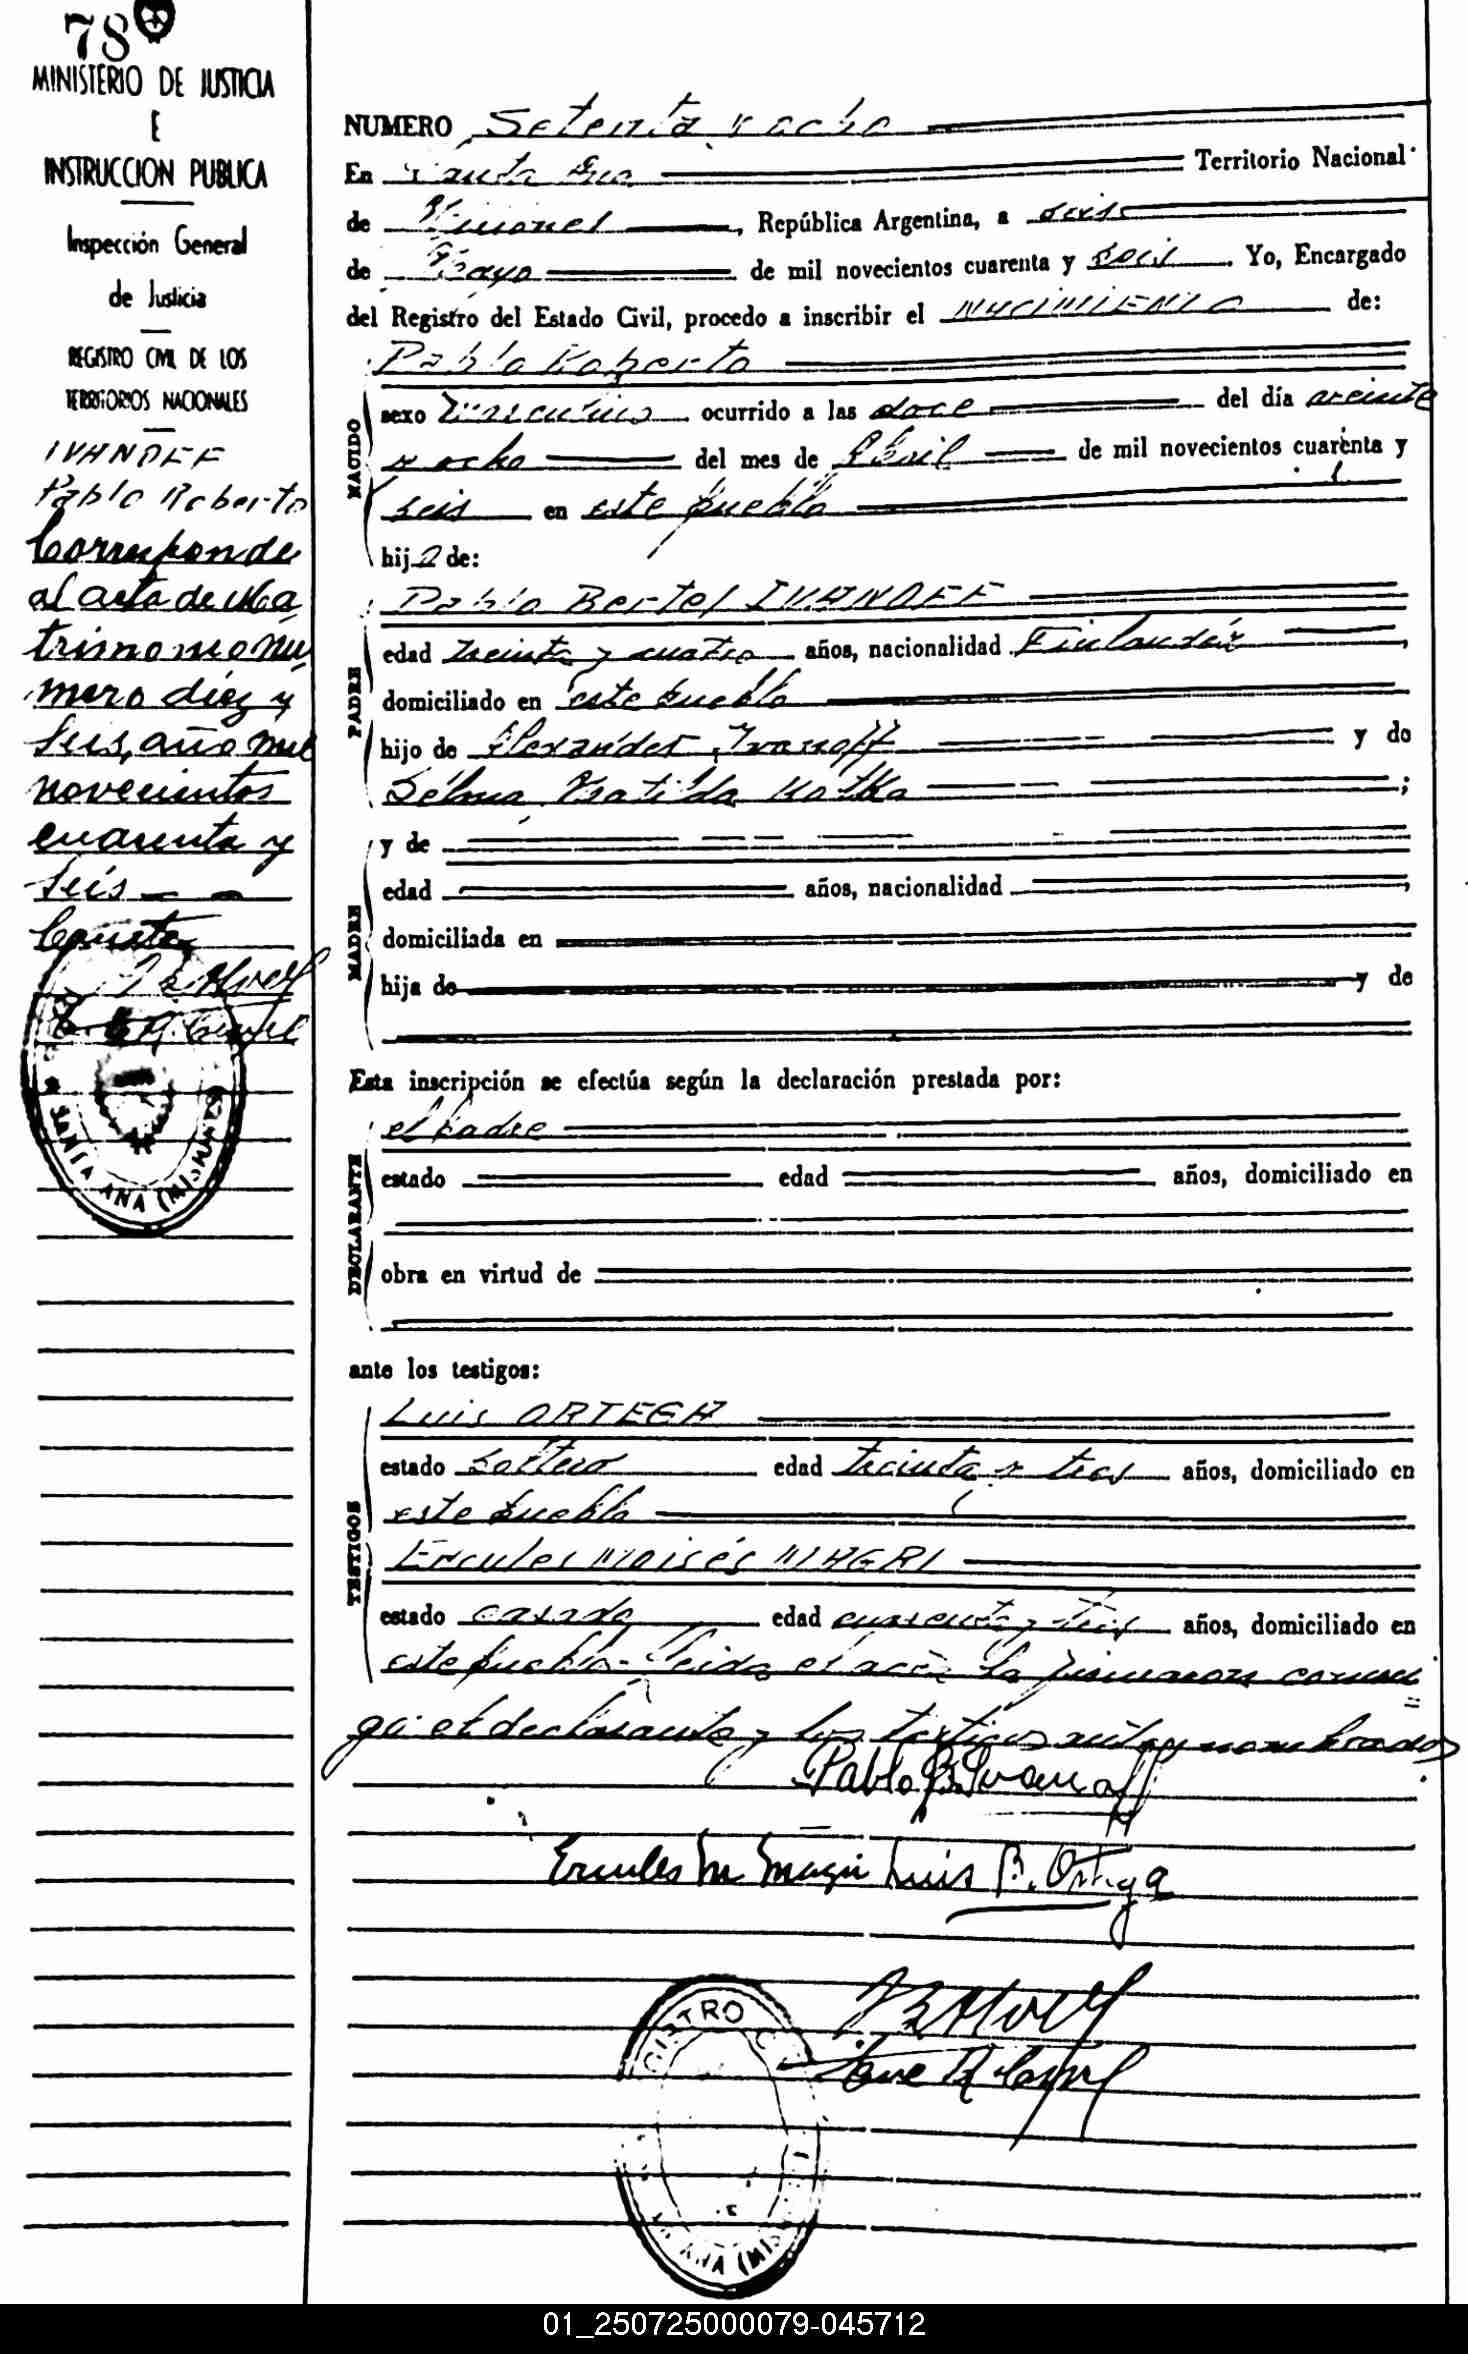 78
MINISTERIO DE JUSTICIA
E
INSTRUCCION PUBLICA
Inspección General
de Justicia
REGISTRO CIVIL DE LOS
TERRITORIOS NACIONALES
IVANOFF
Pablo Roberto
Corresponde
al acta de Ma
trimonio nú
mero diez y
seis, año mil
novecientos
cuarenta y
seis
Conste
SANTA ANA (MISIONES)
NUMERO Setenta y ocho
En Santa Ana Territorio Nacional
de Misiones, República Argentina, a seis
de Mayo de mil novecientos cuarenta y seis. Yo, Encargado
del Registro del Estado Civil, procedo a inscribir el NACIMIENTO de:
Pablo Roberto
NACIDO
sexo masculino ocurrido a las doce del día veinte
y ocho del mes de Abril de mil novecientos cuarenta y
seis en este pueblo
hijo de:
Pablo Bertel IVANOFF
PADRE
edad treinta y cuatro años, nacionalidad Finlandés,
domiciliado en este pueblo
hijo de Alexander Ivanoff y de
Sélma Matilda ;
MADRE
y de
edad años, nacionalidad ,
domiciliada en
hija de y de
Esta inscripción se efectúa según la declaración prestada por:
el padre
DECLARANTE
estado edad años, domiciliado en
obra en virtud de
ante los testigos:
Luis ORTEGA
TESTIGOS
estado soltero edad treinta y tres años, domiciliado en
este pueblo
Ercules Moisés MAGRI
estado casado edad cuarenta y tres años, domiciliado en
este pueblo - Leida el acta la firmaron conmi
go el declarante y los testigos nombrados
Pablo B. Ivanoff
Ercules M Magri Luis B. Ortega
REGISTRO
ANA (MIS
01_250725000079-045712